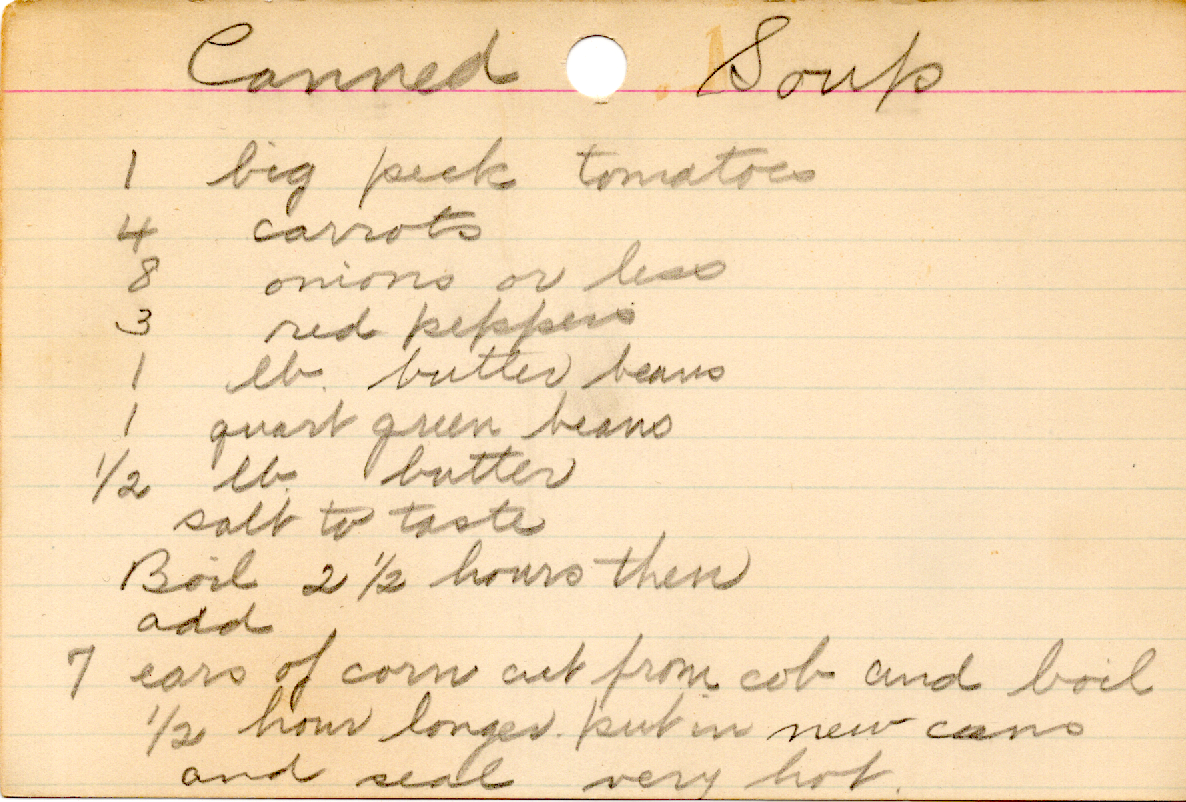 Canned Soup
1 big peck tomatoes
4 carrots
8 onions or less
3 red peppers
1 lb. butter beans
1 quart green beans
1/2 lb. butter
salt to taste
Boil 2 1/2 hours then
add
7 ears of corn cut from cob and boil
1/2 hour longer. put in new cans
and seal very hot.